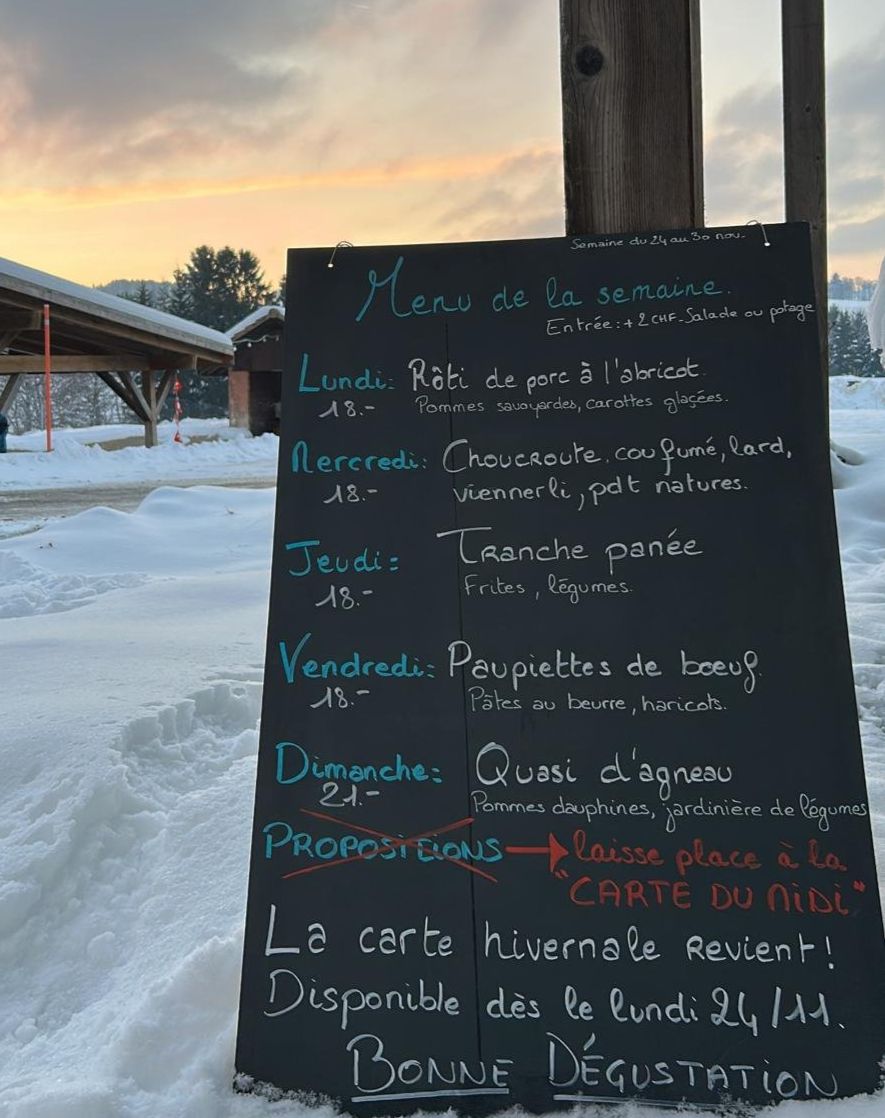 Semaine du 24 au 30 nov.
Menu de la semaine.
Entrée: + 2 CHF - Salade ou potage
Lundi: Rôti de porc à l'abricot.
18.- Pommes savoyardes, carottes glaçées.
Mercredi: Choucroute, cou fumé, lard,
18.- viennerli, pdt natures.
Jeudi: Tranche panée
18.- Frites, légumes.
Vendredi: Paupiettes de bœuf
18.- Pâtes au beurre, haricots.
Dimanche: Quasi d'agneau
21.- Pommes dauphines, jardinière de légumes
PROPOSITIONS → laisse place à la
"CARTE DU NIDI"
La carte hivernale revient!
Disponible dès le lundi 24/11.
BONNE DÉGUSTATION